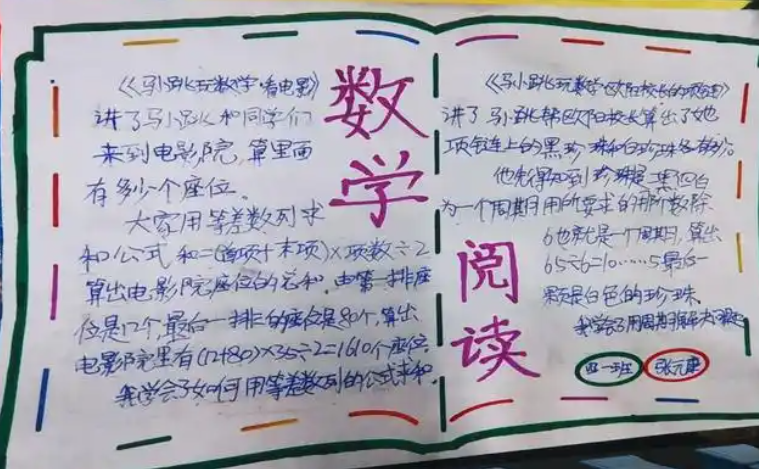 《马小跳玩数学·看电影》
讲了马小跳和同学们
来到电影院,算里面
有多少个座位。
大家用等差数列求
和公式 和=(首项+末项)×项数÷2
算出电影院座位的总和。由第一排座
位是12个,最后一排的座位是80个,算出
电影院里有(12+80)×35÷2=1610个座位。
我学会了如何用等差数列的公式求和。
数学
阅读
《马小跳玩数学·欧阳校长的项链》
讲了马小跳帮欧阳校长算出了她
项链上的黑珍珠和白珍珠各有多少。
他先得知到珍珠是二黑四白
为一个周期,用所要求的 除
6也就是一个周期,算出
65÷6=10……5最后一
颗是白色的珍珠。
我学会了用周期解决问题
四一班
张元康